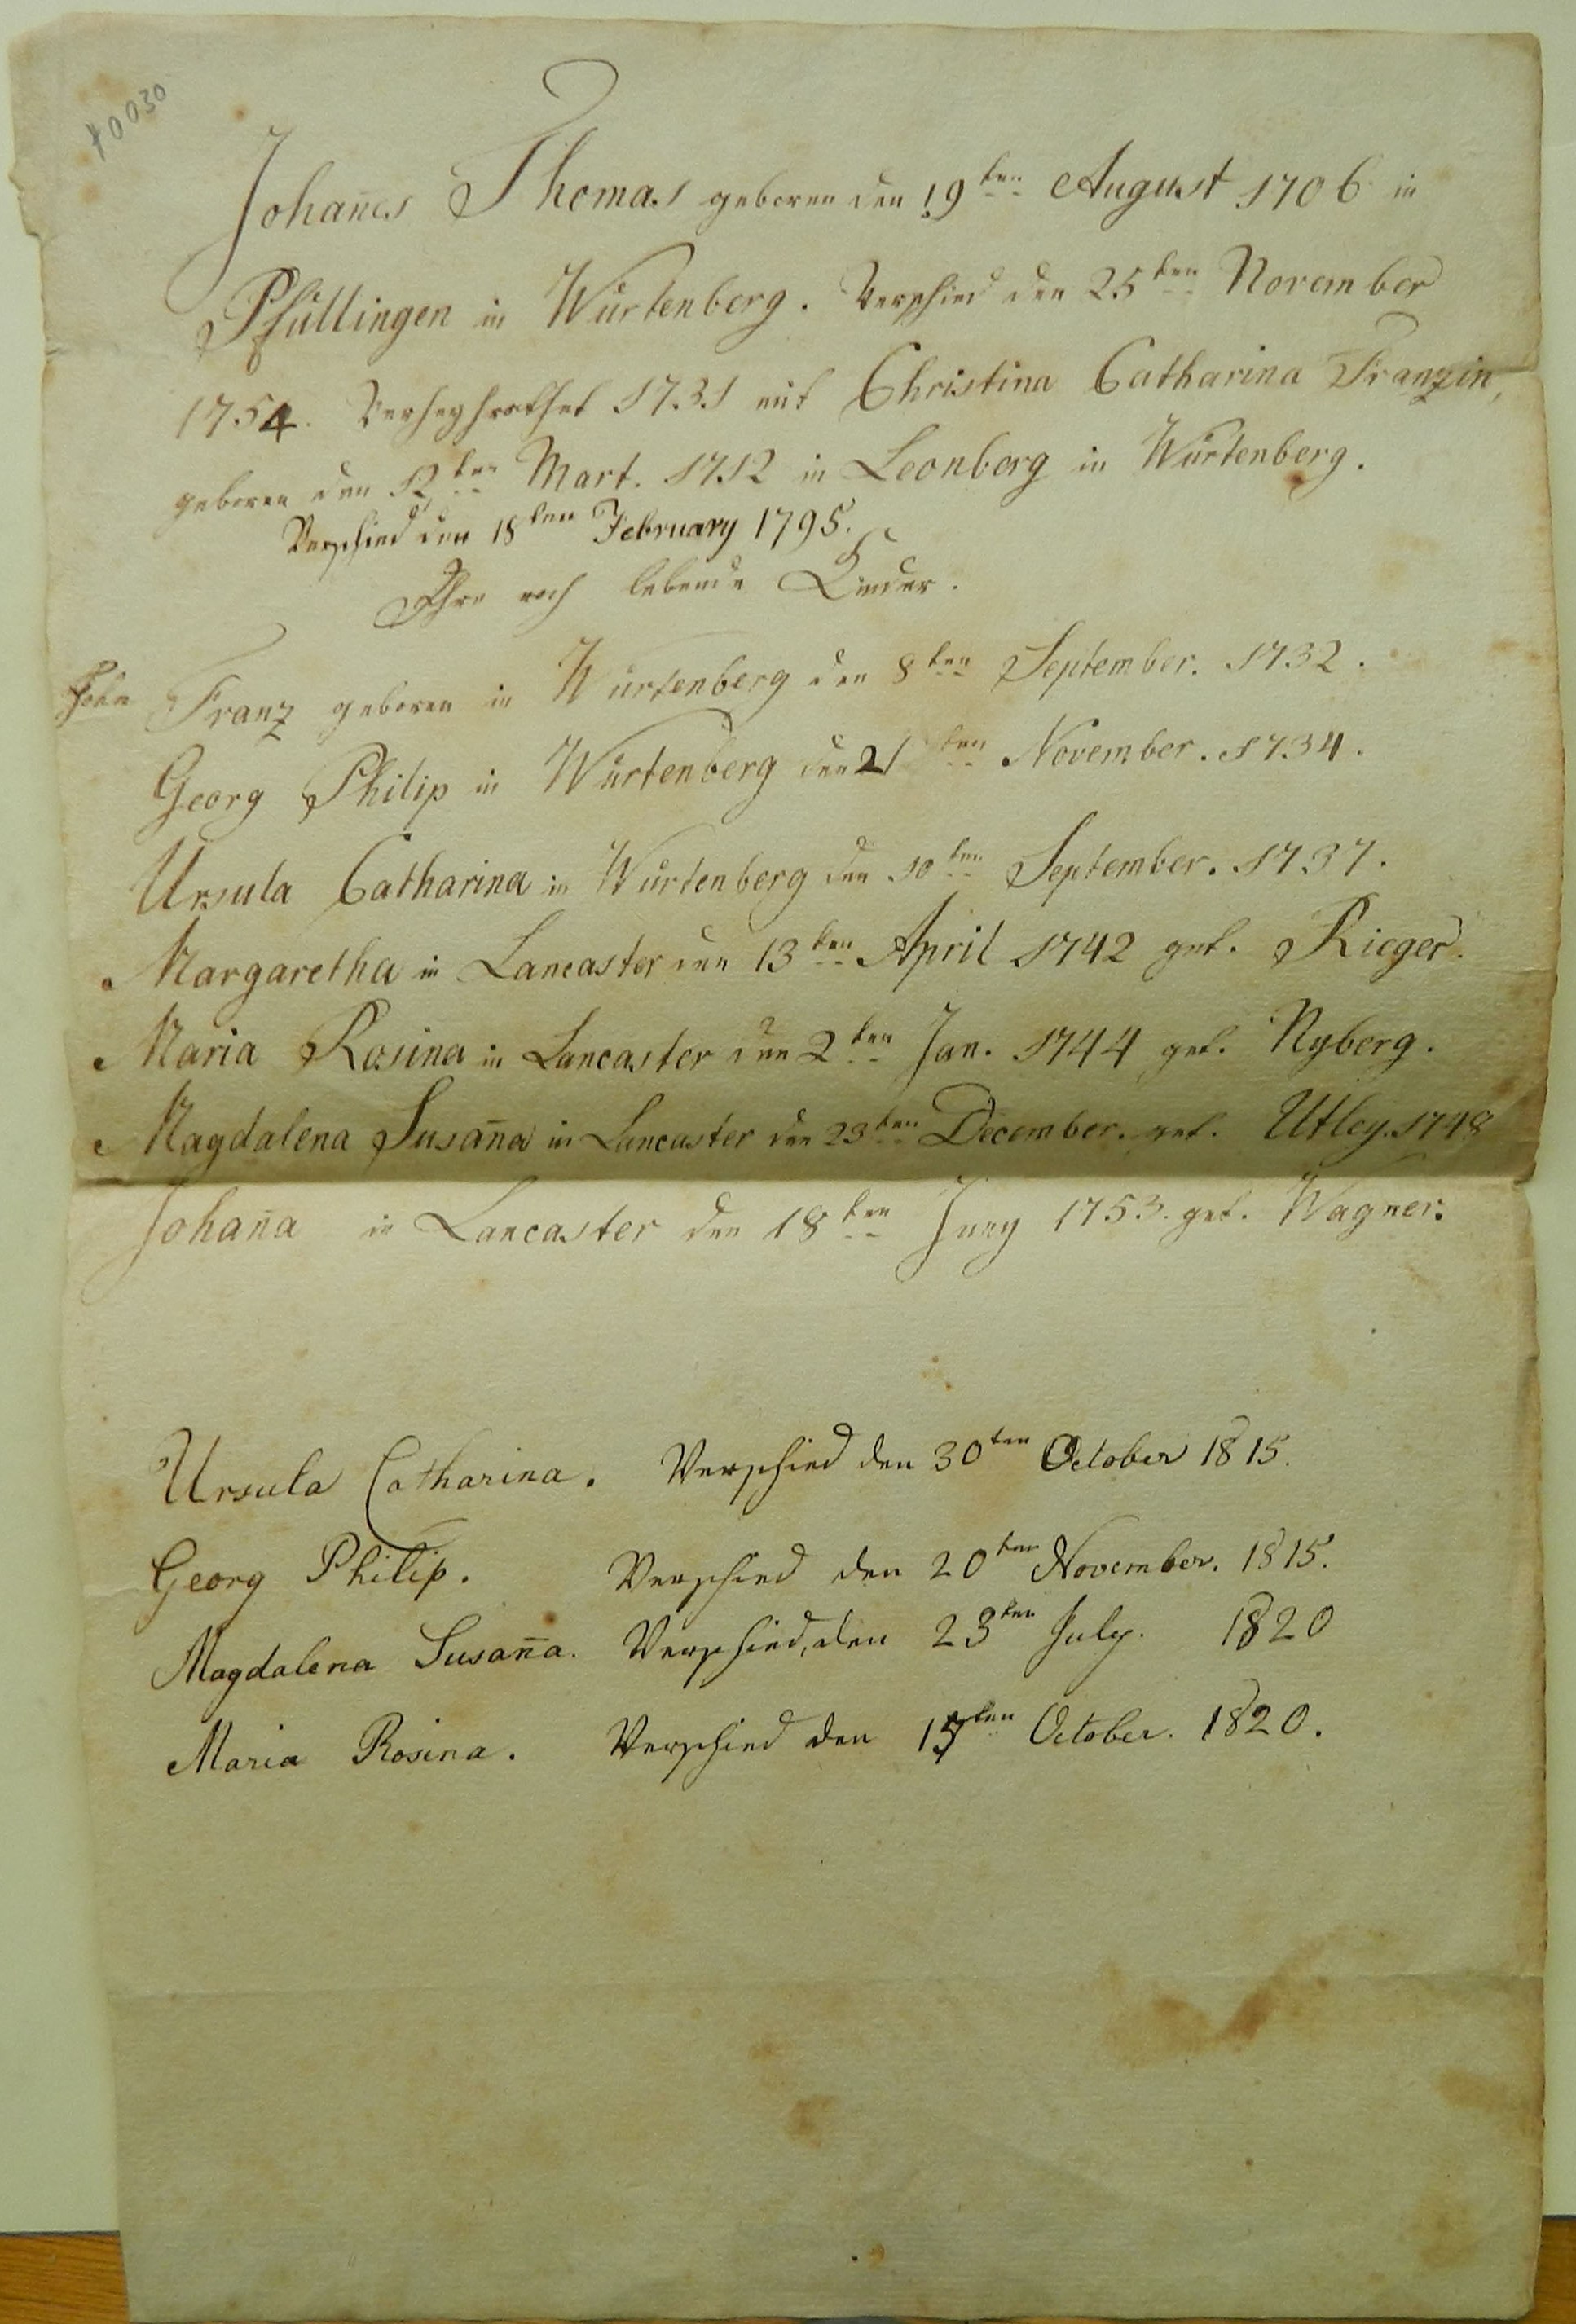 10030
Johan̄es Thomas geboren den 19ten August 1706 in
Pfüllingen in Würtenberg. Verschied den 25ten November
1754. Verheyhrathet 1731 mit Christina Catharina Franzin,
geboren den 12ten Mart. 1712 in Leonberg in Würtenberg.
Verschied den 18ten February 1795.
Ihre noch lebende Kinder.
John Franz geboren in Würtenberg den 8ten September. 1732.
Georg Philip in Würtenberg den 21ten November. 1734.
Ursula Catharina in Würtenberg den 10ten September. 1737.
Margaretha in Lancaster den 13ten April 1742 get. Rieger.
Maria Rosina in Lancaster den 2ten Jan. 1744 get. Nyberg.
Magdalena Susan̄a in Lancaster den 23ten December. get. Utley. 1748
Johan̄a in Lancaster den 18ten Juny 1753. get. Wagner.
Ursula Catharina. Verschied den 30ten October 1815.
Georg Philip. Verschied den 20ten November. 1815.
Magdalena Susan̄a. Verschied, den 23ten July. 1820
Maria Rosina. Verschied den ten October. 1820.